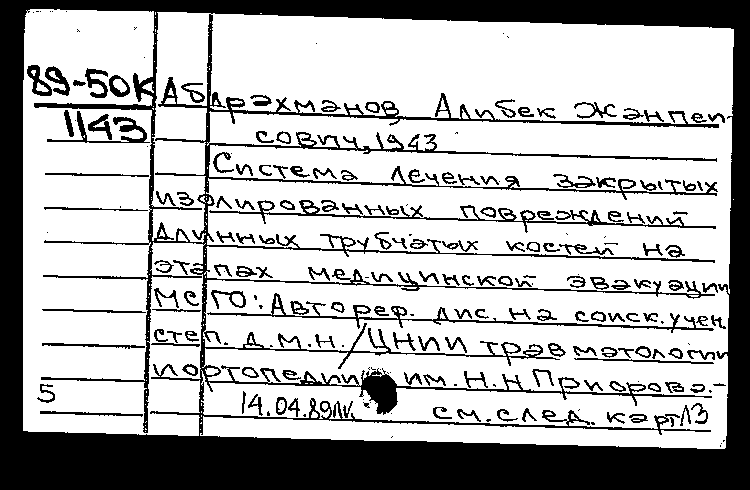 89-50К Абдрахманов, Алибек Жанпеи-
1143
сович, 1943
Система лечения закрытых
изолированных повреждений
длинных трубчатых костей на
этапах медицинской эвакуации
МС ГО: Автореф. дис. на соиск. учен.
степ. д.м.н. / ЦНИИ травматологии
и ортопедии им. Н.Н Приорова.-
5
14.04.89 см. след. карт